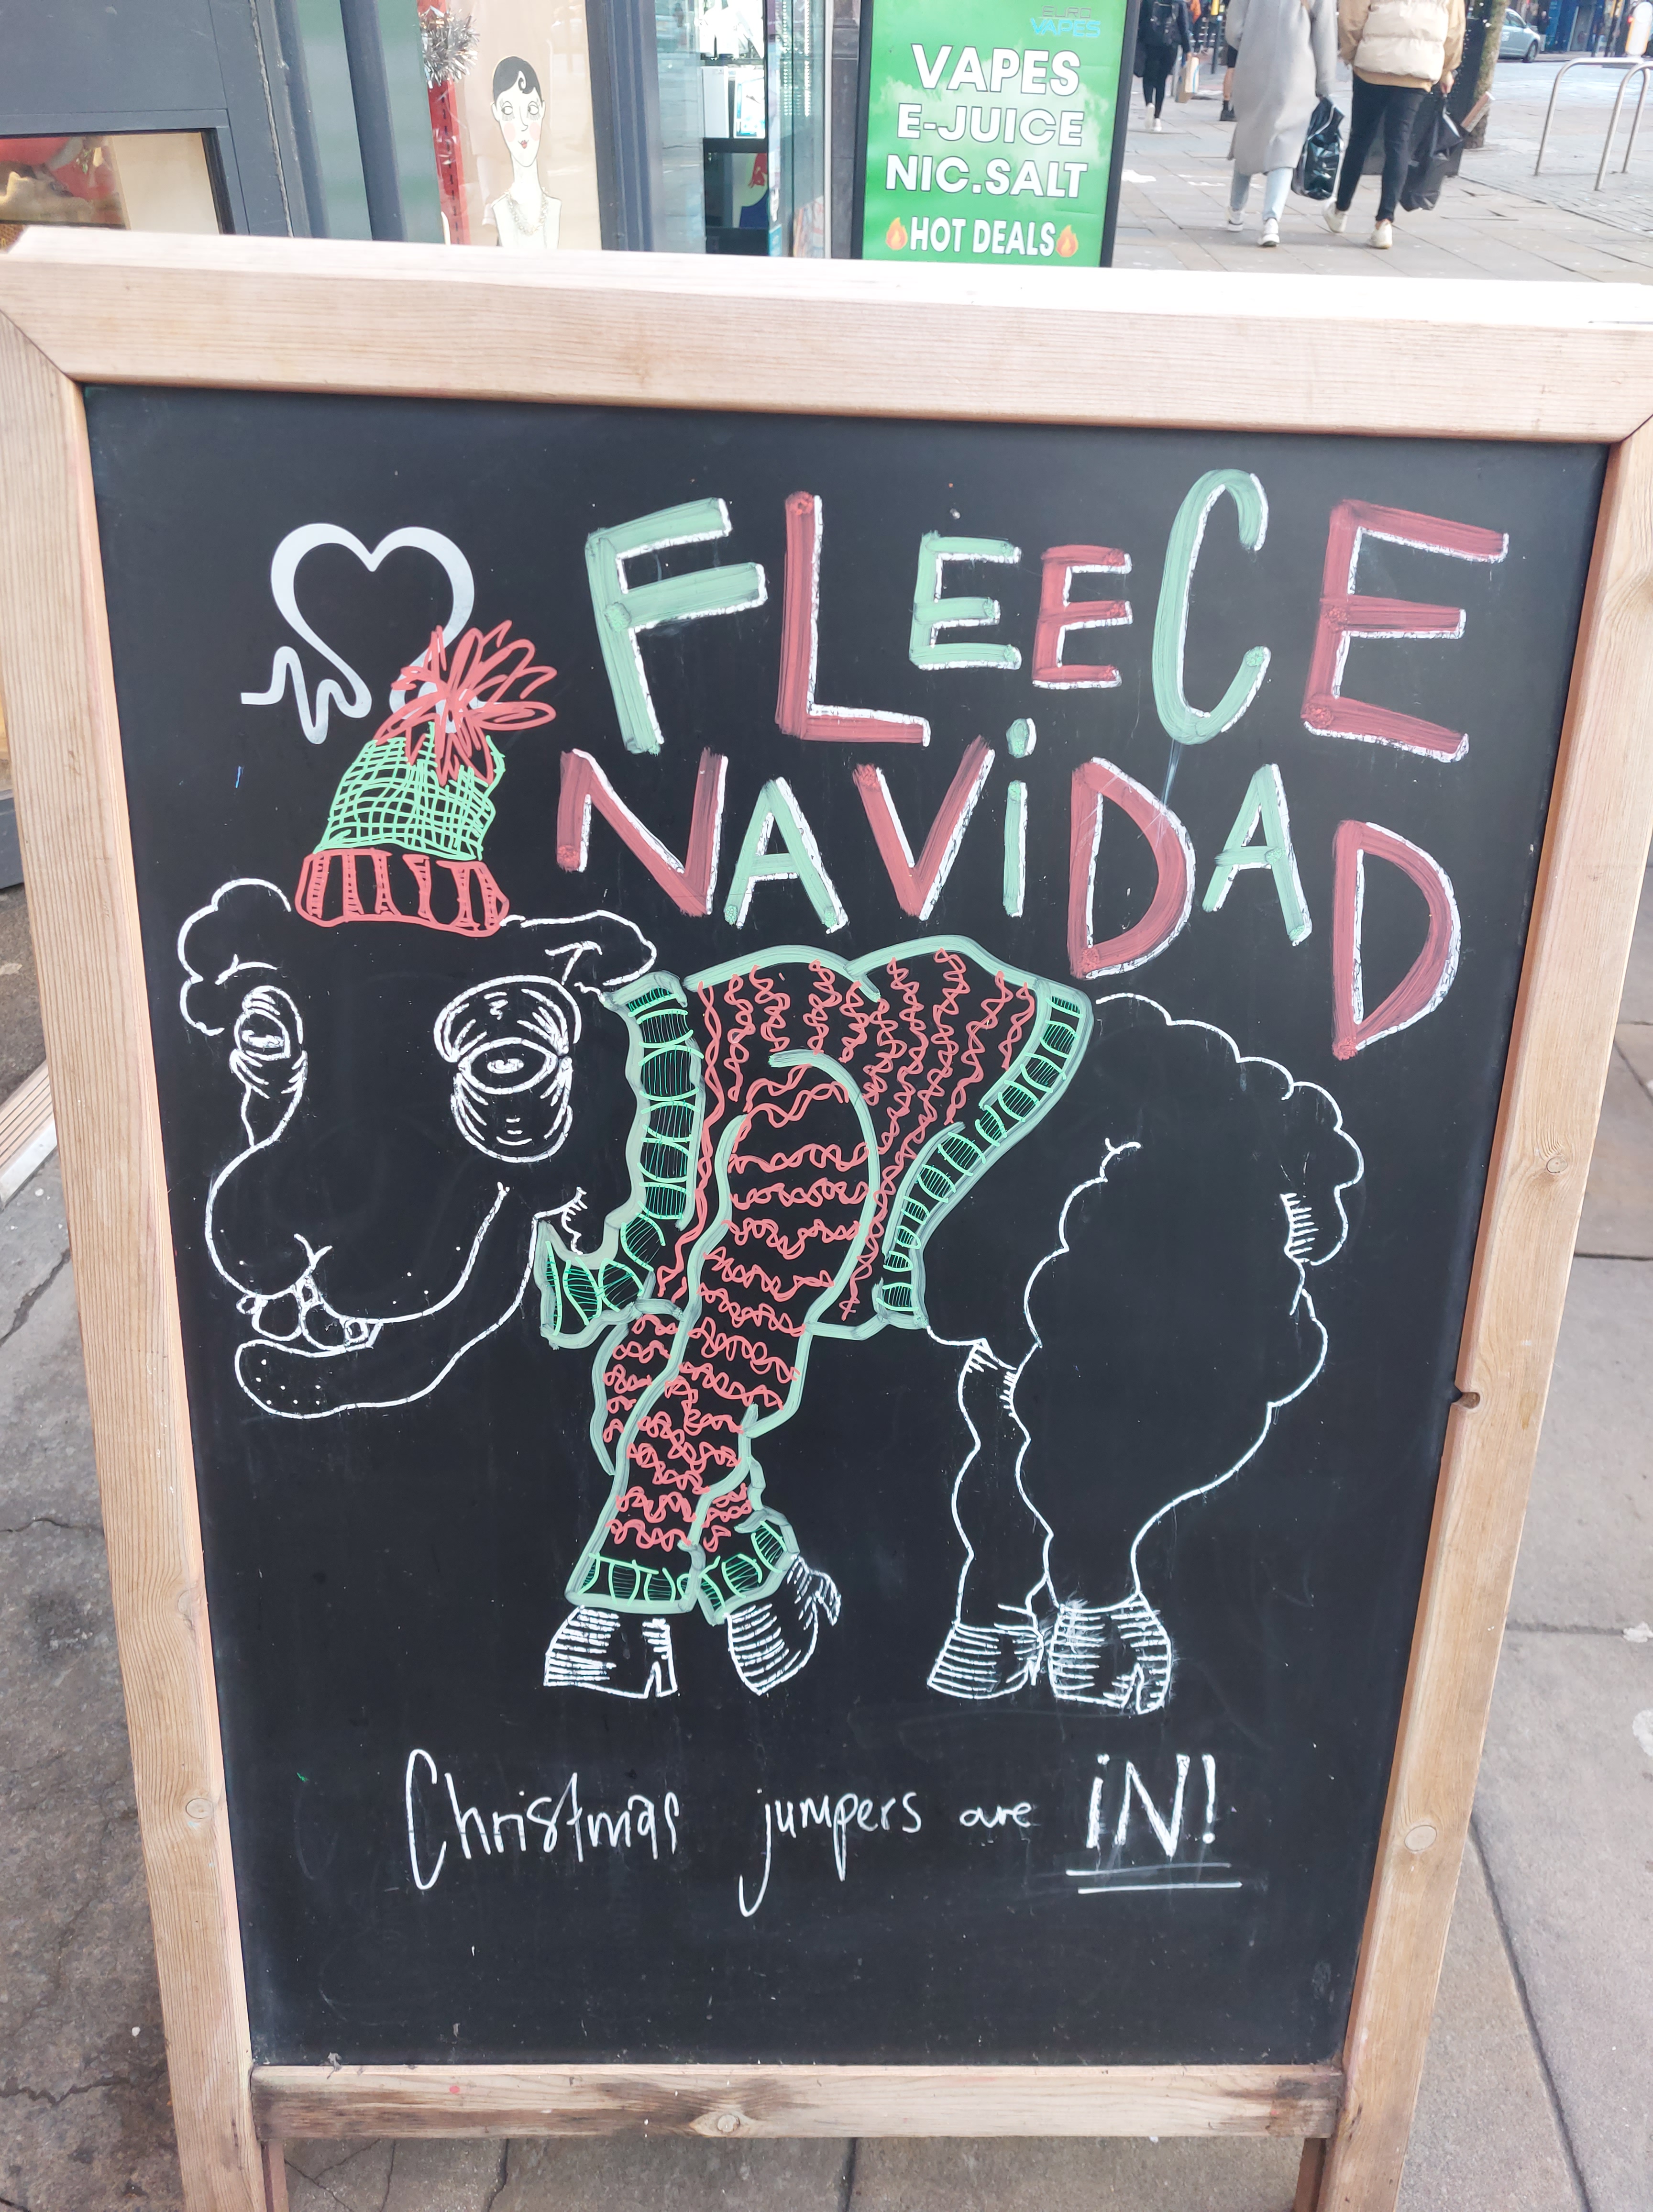 EURO
VAPES
VAPES
E-JUICE
NIC.SALT
🔥HOT DEALS🔥
FLEECE
NAViDAD
Christmas jumpers are iN!